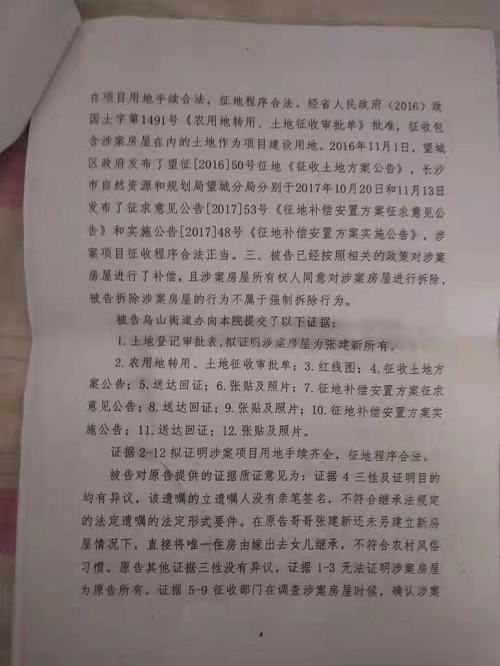 在项目用地手续合法，征地程序合法。经省人民政府（2016）政
国土字第1491号《农用地转用、土地征收审批单》批准，征收包
含涉案房屋在内的土地作为项目建设用地。2016年11月1日，望城
区政府发布了望征[2016]50号征地《征收土地方案公告》，长沙
市自然资源和规划局望城分局分别于2017年10月20日和11月13日
发布了征求意见公告[2017]53号《征地补偿安置方案征求意见公
告》和实施公告[2017]48号《征地补偿安置方案实施公告》，涉
案项目征收程序合法正当。三、被告已经按照相关的政策对涉案
房屋进行了补偿，且涉案房屋所有权人同意对涉案房屋进行拆除，
被告拆除涉案房屋的行为不属于强制拆除行为。
被告乌山街道办向本院提交了以下证据：
1.土地登记审批表，拟证明涉案房屋为张建新所有。
2.农用地转用、土地征收审批单；3.红线图；4.征收土地方
案公告；5.送达回证；6.张贴及照片；7.征地补偿安置方案征求
意见公告；8.送达回证；9.张贴及照片；10.征地补偿安置方案实
施公告；11.送达回证；12.张贴及照片。
证据2-12拟证明涉案项目用地手续齐全，征地程序合法。
被告对原告提供的证据质证意见为：证据4三性及证明目的
均有异议，该遗嘱的立遗嘱人没有亲笔签名，不符合继承法规定
的法定遗嘱的法定形式要件。在原告哥哥张建新还未另建立新房
屋情况下，直接将唯一住房由嫁出去女儿继承，不符合农村风俗
习惯。原告其他证据三性没有异议，证据1-3无法证明涉案房屋
为原告所有。证据5-9征收部门在调查涉案房屋时候，确认涉案
4